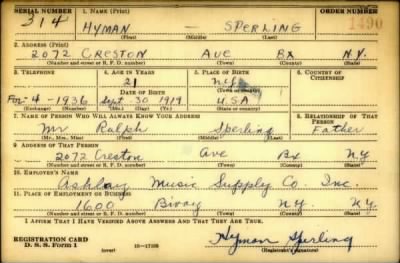 SERIAL NUMBER 1. NAME (Print) ORDER NUMBER
314 HYMAN — SPERLING 1490
(First) (Middle) (Last)
2. ADDRESS (Print)
2072 CRESTON AVE BX N.Y.
(Number and street or R. F. D. number) (Town) (County) (State)
3. TELEPHONE 4. AGE IN YEARS 5. PLACE OF BIRTH 6. COUNTRY OF CITIZENSHIP
21
DATE OF BIRTH (Town or county)
For-4-1936 Sept. 30 1919 U.S.A
(Exchange) (Number) (Mo.) (Day) (Yr.) (State or country)
7. NAME OF PERSON WHO WILL ALWAYS KNOW YOUR ADDRESS 8. RELATIONSHIP OF THAT PERSON
Mr Ralph Sperling Father
(Mr., Mrs., Miss) (First) (Middle) (Last)
9. ADDRESS OF THAT PERSON
2072 Creston Ave Bx N.Y
(Number and street or R. F. D. number) (Town) (County) (State)
10. EMPLOYER'S NAME
Music Supply Co. Inc.
11. PLACE OF EMPLOYMENT OR BUSINESS
1600 N.Y. N.Y.
(Number and street or R. F. D. number) (Town) (County) (State)
I AFFIRM THAT I HAVE VERIFIED ABOVE ANSWERS AND THAT THEY ARE TRUE.
REGISTRATION CARD
D. S. S. Form 1 (over) Hyman Sperling
(Registrant's signature)